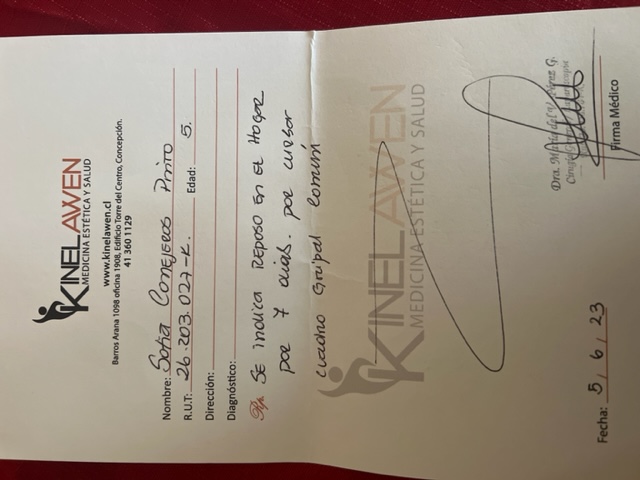 KINELAWEN
MEDICINA ESTÉTICA Y SALUD
www.kinelawen.cl
Barros Arana 1098 oficina 1908, Edificio Torre del Centro, Concepción.
41 360 1129
Nombre: Sofia Conejeros Pinto
R.U.T: 26.203.027-K. Edad: 5.
Dirección:
Diagnóstico:
Rp. Se indica reposo en el Hogar
por 7 dias. por cursar
cuadro Gripal común
KINELAWEN
MEDICINA ESTÉTICA Y SALUD
Dra. María del V. Pérez G.
Firma Médico
Fecha: 5/6/23